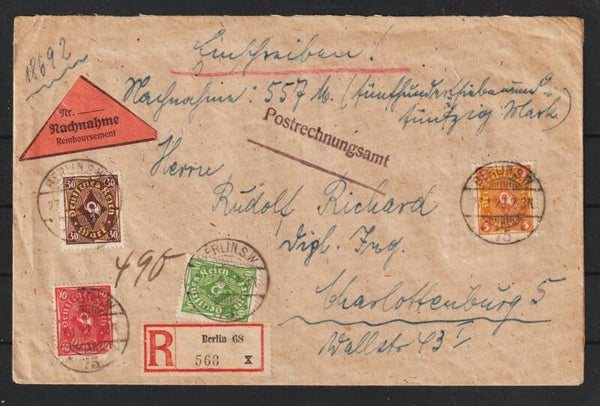 18692
Einschreiben!
Nachnahme: 557 M. (fünfhundertsiebenund
fünfzig Mark)
Nr.
Nachnahme
Remboursement
Postrechnungsamt
Herrn
Rudolf Richard
Dipl. Ing.
Charlottenburg 5
Wallstr. 43 I
BERLIN S.W.
30 30
Deutsches Reich
30 Mark 30
BERLIN S.W.
75
490
BERLIN S.W.
Deutsches Reich
10
Deutsches Reich
75
R
Berlin 68
568 x